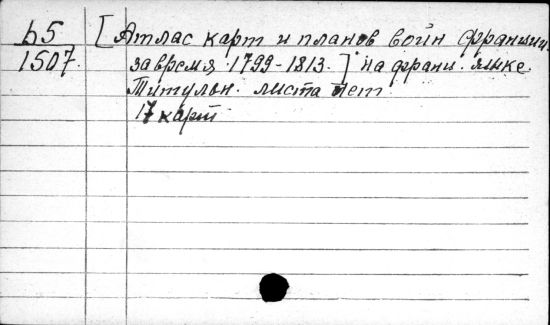 Б5 [Атлас карт и планов войн Франции
1507 за время 1799-1813.] на франц. языке.
Титульн. листа нет
17 карт